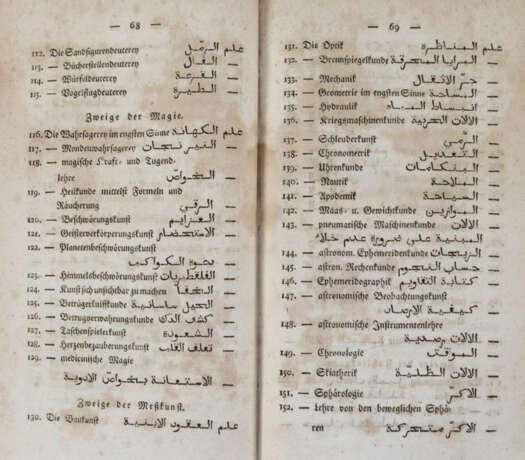 — 68 —
112. Die Sandfigurendeuterey علم الرمل
113. — Bücherstellendeuterey الفال —
114. — Würfeldeuterey القرعة —
115. — Vogelflugdeuterey الطيرة —
Zweige der Magie.
116. Die Wahrsagerey im engsten Sinne علم الكهانة
117. — Mondenwahrsagerey النيرنجات —
118. — magische Kraft- und Tugend-
lehre الخواص —
119. — Heilkunde mittelst Formeln und
Räucherung الرقي —
120. — Beschwörungskunst العزايم —
121. — Geisterverkörperungskunst الاستحضار —
122. — Planetenbeschwörungskunst
دعوة الكواكب —
123. — Himmelsbeschwörungskunst الفلقطيريات —
124. — Kunst sich unsichtbar zu machen الخفا —
125. — Betrügerlistkunde الحيل ساسانية —
126. — Betrugverwahrungskunde كشف الدك —
127. — Taschenspielerkunst الشعبده —
128. — Herzenbezauberungskunst تعلق القلب —
129. — medicinische Magie
الاستعانة بخواص الادوية —
Zweige der Meßkunst.
130. Die Baukunst علم العقود الابنية
— 69 —
131. Die Optik علم المناظرة
132. — Brennspiegelkunde المرايا المحرقة —
133. — Mechanik جر الاثقال —
134. — Geometrie im engsten Sinne المساحة —
135. — Hydraulik انبساط المياه —
136. — Kriegsmaschinenkunde الالات الحربية —
137. — Schleuderkunst الرمي —
138. — Chronometrik التعديل —
139. — Uhrenkunde البنكامات —
140. — Nautik الملاحة —
141. — Apodemik السياحة —
142. — Maas- u. Gewichtkunde الموازين —
143. — pneumatische Maschinenkunde الالات
المبنية على ضرورة عدم خلا
144. — astronom. Ephemeridenkunde الزيجات —
145. — astron. Rechenkunde حساب النجوم —
146. — Ephemeridographik كتابة التقاويم —
147. — astronomische Beobachtungskunst
كيفية الارصاد —
148. — astronomische Instrumentenlehre
الالات رصدية —
149. — Chronologie المواقت —
150. — Skiatherik الالات الظلية —
151. — Sphärologie الاكر —
152. — Lehre von den beweglichen Sphä-
ren الاكر متحركة —